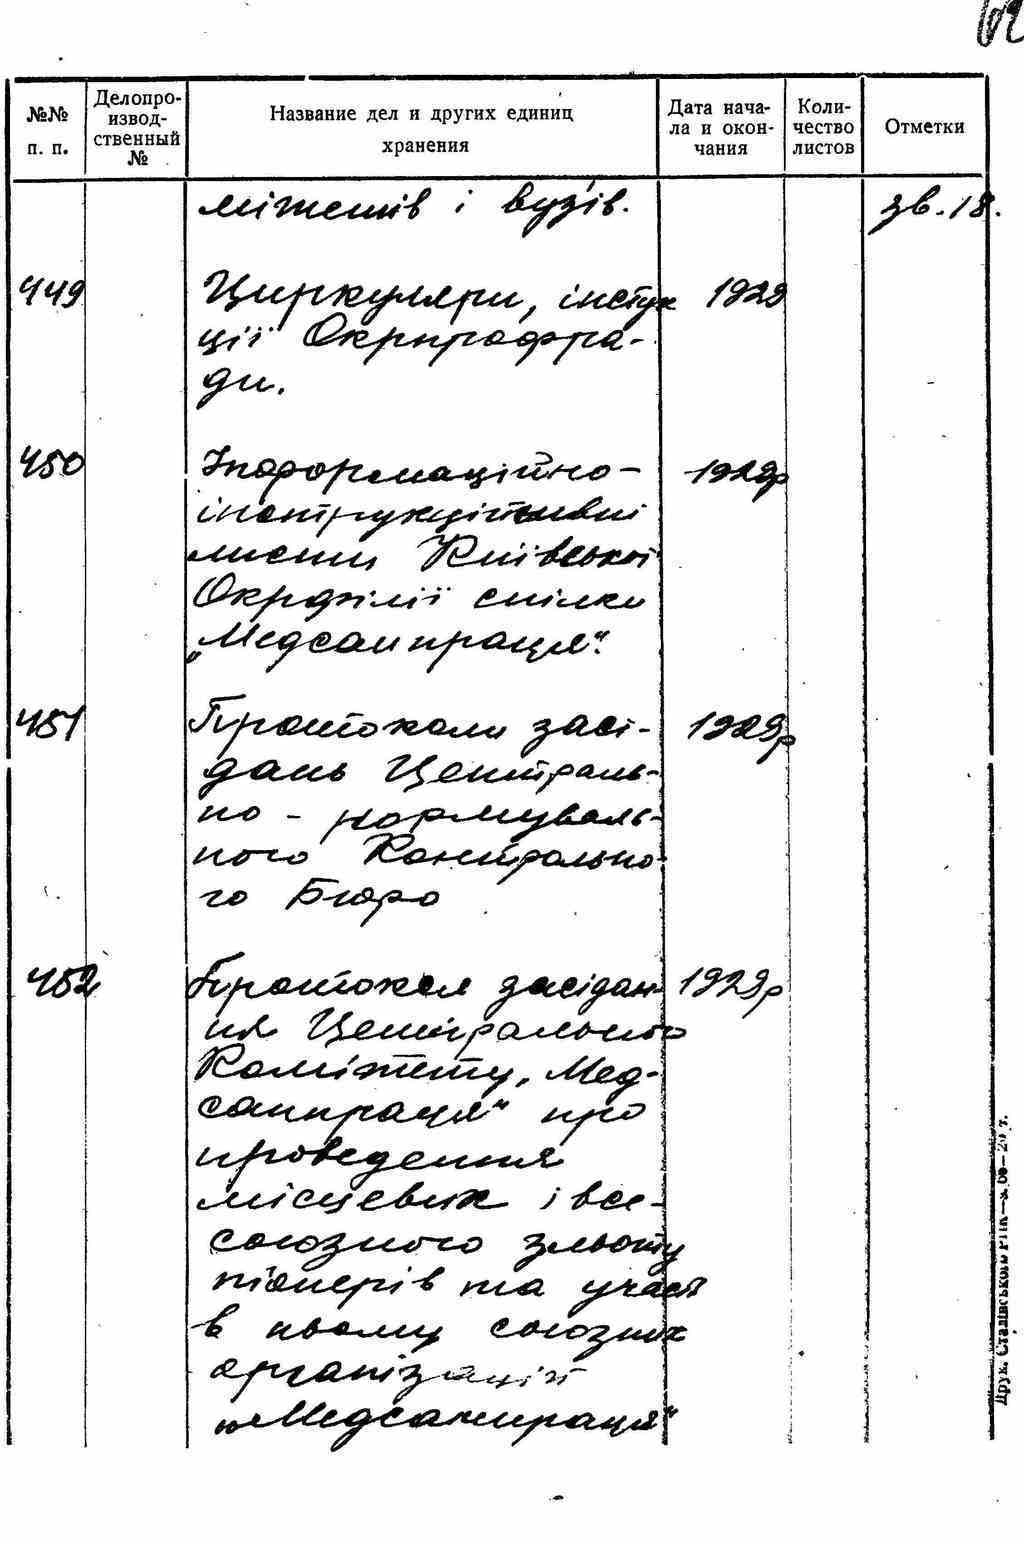 №№ п. п.
Делопро-
извод-
ственный
№
Название дел и других единиц
хранения
Дата нача-
ла и окон-
чания
Коли-
чество
листов
Отметки
мітетів і вузів.
зв. 18.
449
Циркуляри, інстук
1929
ції Окрпрофра-
ди.
450
Інформаційно-
1929р
інструкційнивні
листи Київської
Окрфілії спілки
„Медсанпраця".
451
Протоколи засі-
1929р
дань Централь-
но - нормуваль-
ного Контрольно-
го Бюро
452
Протокол засідан-
1929р
ня Центрального
Комітету „Мед-
санпраця" про
проведення
місцевих і все-
союзного зльоту
піонерів та участь
в ньому союзних
організацій
„Медсанпраця"